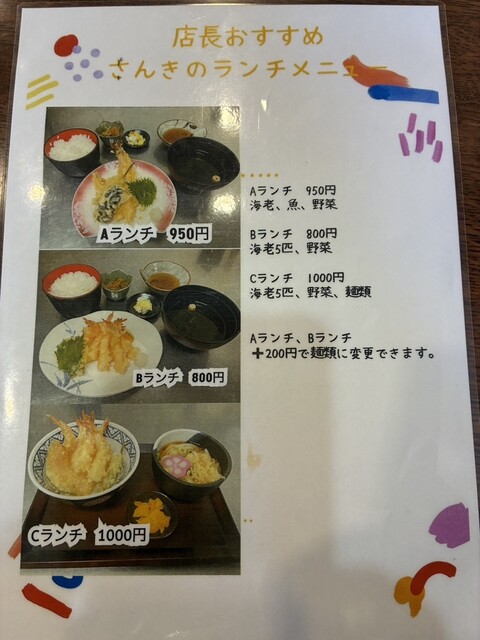 店長おすすめ
さんきのランチメニュー
Aランチ 950円
Aランチ 950円
海老、魚、野菜
Bランチ 800円
海老5匹、野菜
Cランチ 1000円
海老5匹、野菜、麺類
Aランチ、Bランチ
+200円で麺類に変更できます。
Bランチ 800円
Cランチ 1000円